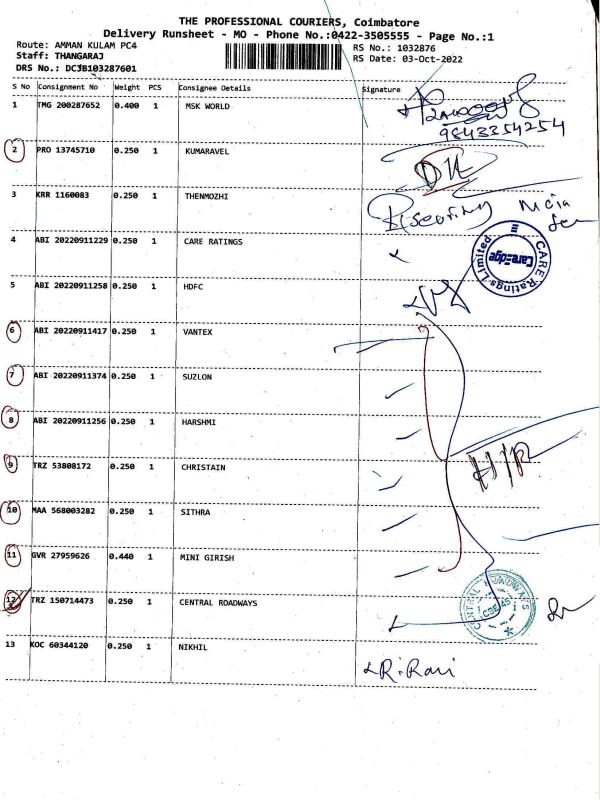 THE PROFESSIONAL COURIERS, Coimbatore
Delivery Runsheet - MO - Phone No.:0422-3505555 - Page No.:1
Route: AMMAN KULAM PC4
Staff: THANGARAJ
DRS No.: DCJB103287601
RS No.: 1032876
RS Date: 03-Oct-2022
S No Consignment No Weight PCS Consignee Details Signature
1 TMG 200287652 0.400 1 MSK WORLD
9843354254
2 PRO 13745710 0.250 1 KUMARAVEL
3 KRR 1160083 0.250 1 THENMOZHI
4 ABI 20220911229 0.250 1 CARE RATINGS
CARE Ratings Limited
CareEdge
5 ABI 20220911258 0.250 1 HDFC
6 ABI 20220911417 0.250 1 VANTEX
7 ABI 20220911374 0.250 1 SUZLON
8 ABI 20220911256 0.250 1 HARSHMI
9 TRZ 53808172 0.250 1 CHRISTAIN
10 MAA 568003282 0.250 1 SITHRA
11 GVR 27959626 0.440 1 MINI GIRISH
12 TRZ 150714473 0.250 1 CENTRAL ROADWAYS
CENTRAL ROADWAYS
13 KOC 60344120 0.250 1 NIKHIL
R. Ravi